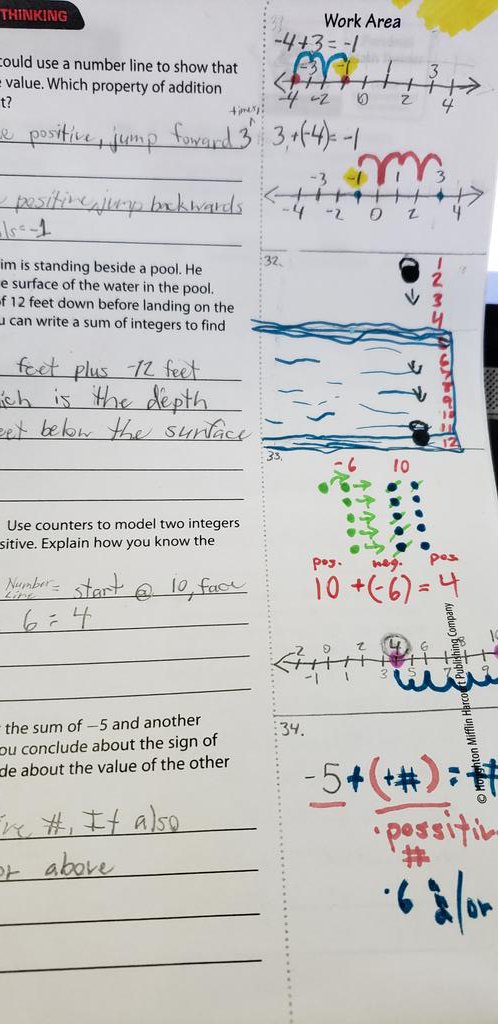 THINKING
Work Area
-4+3=-1
could use a number line to show that
value. Which property of addition
t?
-3 -1 1 3
-4 -2 0 2 4
times,
e positive, jump foward 3
3+(-4)=-1
-3 -1 1 3
-4 -2 0 2 4
positive, jump backwards
ls=-1
im is standing beside a pool. He
e surface of the water in the pool.
of 12 feet down before landing on the
u can write a sum of integers to find
feet plus -12 feet
ich is the depth
eet below the surface
32.
1
2
3
4
5
6
7
8
9
10
11
12
33.
-6 10
Use counters to model two integers
sitive. Explain how you know the
pos. neg. pos
10+(-6)=4
Number Line = start @ 10, face
6=4
-2 0 2 4 6
-1 1 3 5 7 9
© Houghton Mifflin Harcourt Publishing Company
the sum of −5 and another
ou conclude about the sign of
de about the value of the other
ive #, It also
or above
34.
-5+(+#)=+#
·possitiv
#
·6 a/or